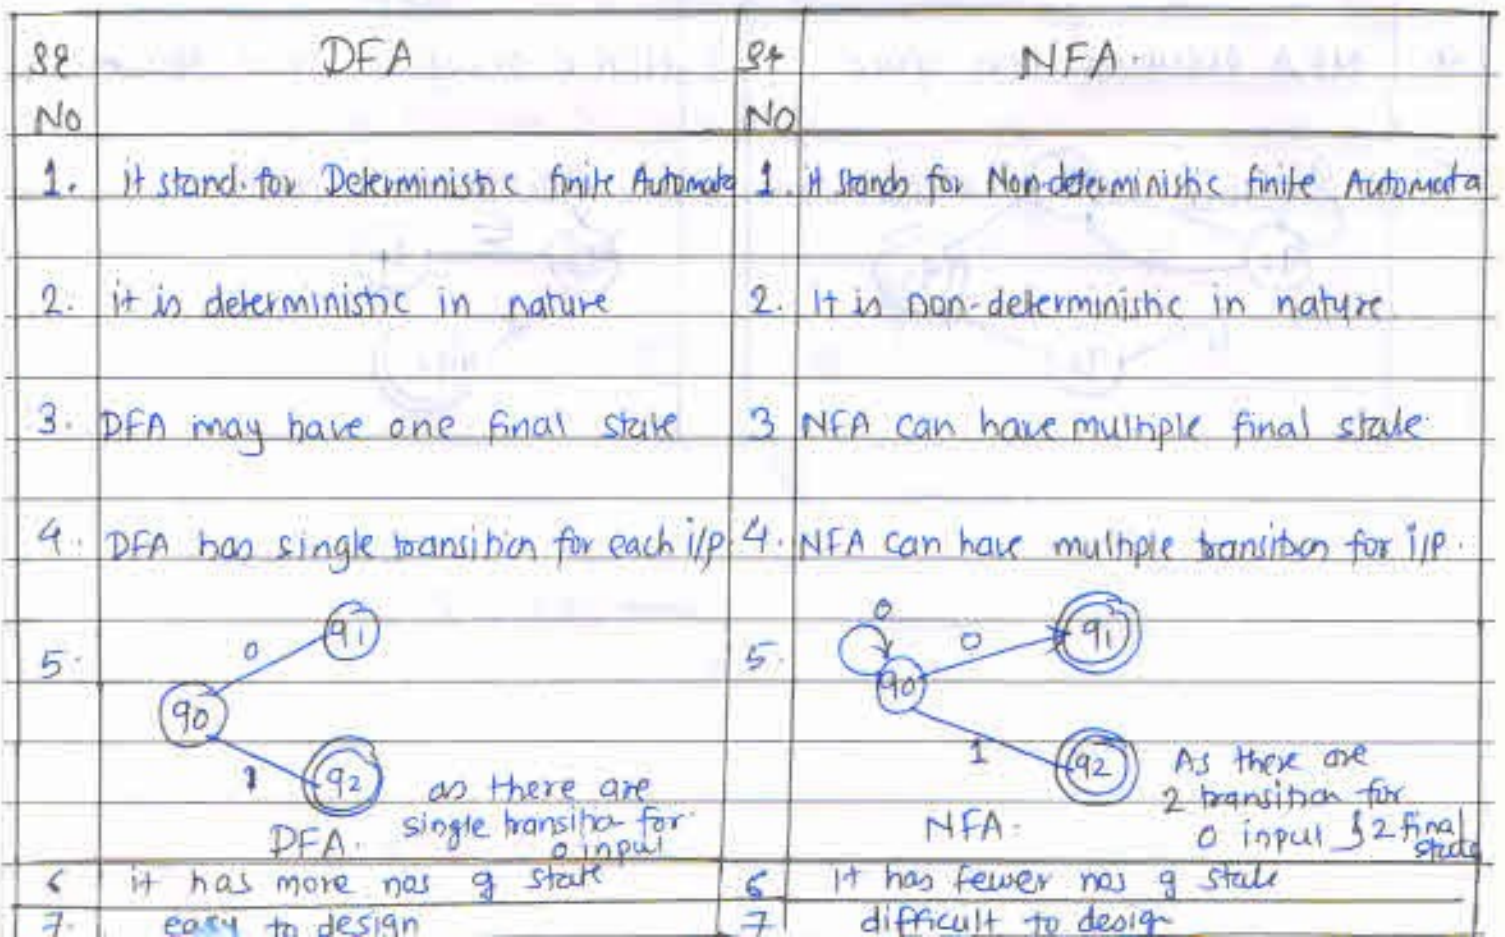 Sr No DFA Sr No NFA.
1. it stand for Deterministic finite Automata 1. it stands for Non-deterministic finite Automata
2. it is deterministic in nature 2. It is non-deterministic in nature.
3. DFA may have one final state 3 NFA can have multiple final state.
4. DFA has single transition for each i/p. 4. NFA can have multiple transition for i/p.
5. 5.
0 q1
q0
1 q2
as there are
single transition for
0 input
DFA.
0
0 q1
q0
1 q2
As there are
2 transition for
0 input } 2 final
state
NFA.
6 it has more nos of state 6 It has fewer nos of state
7. easy to design 7 difficult to design